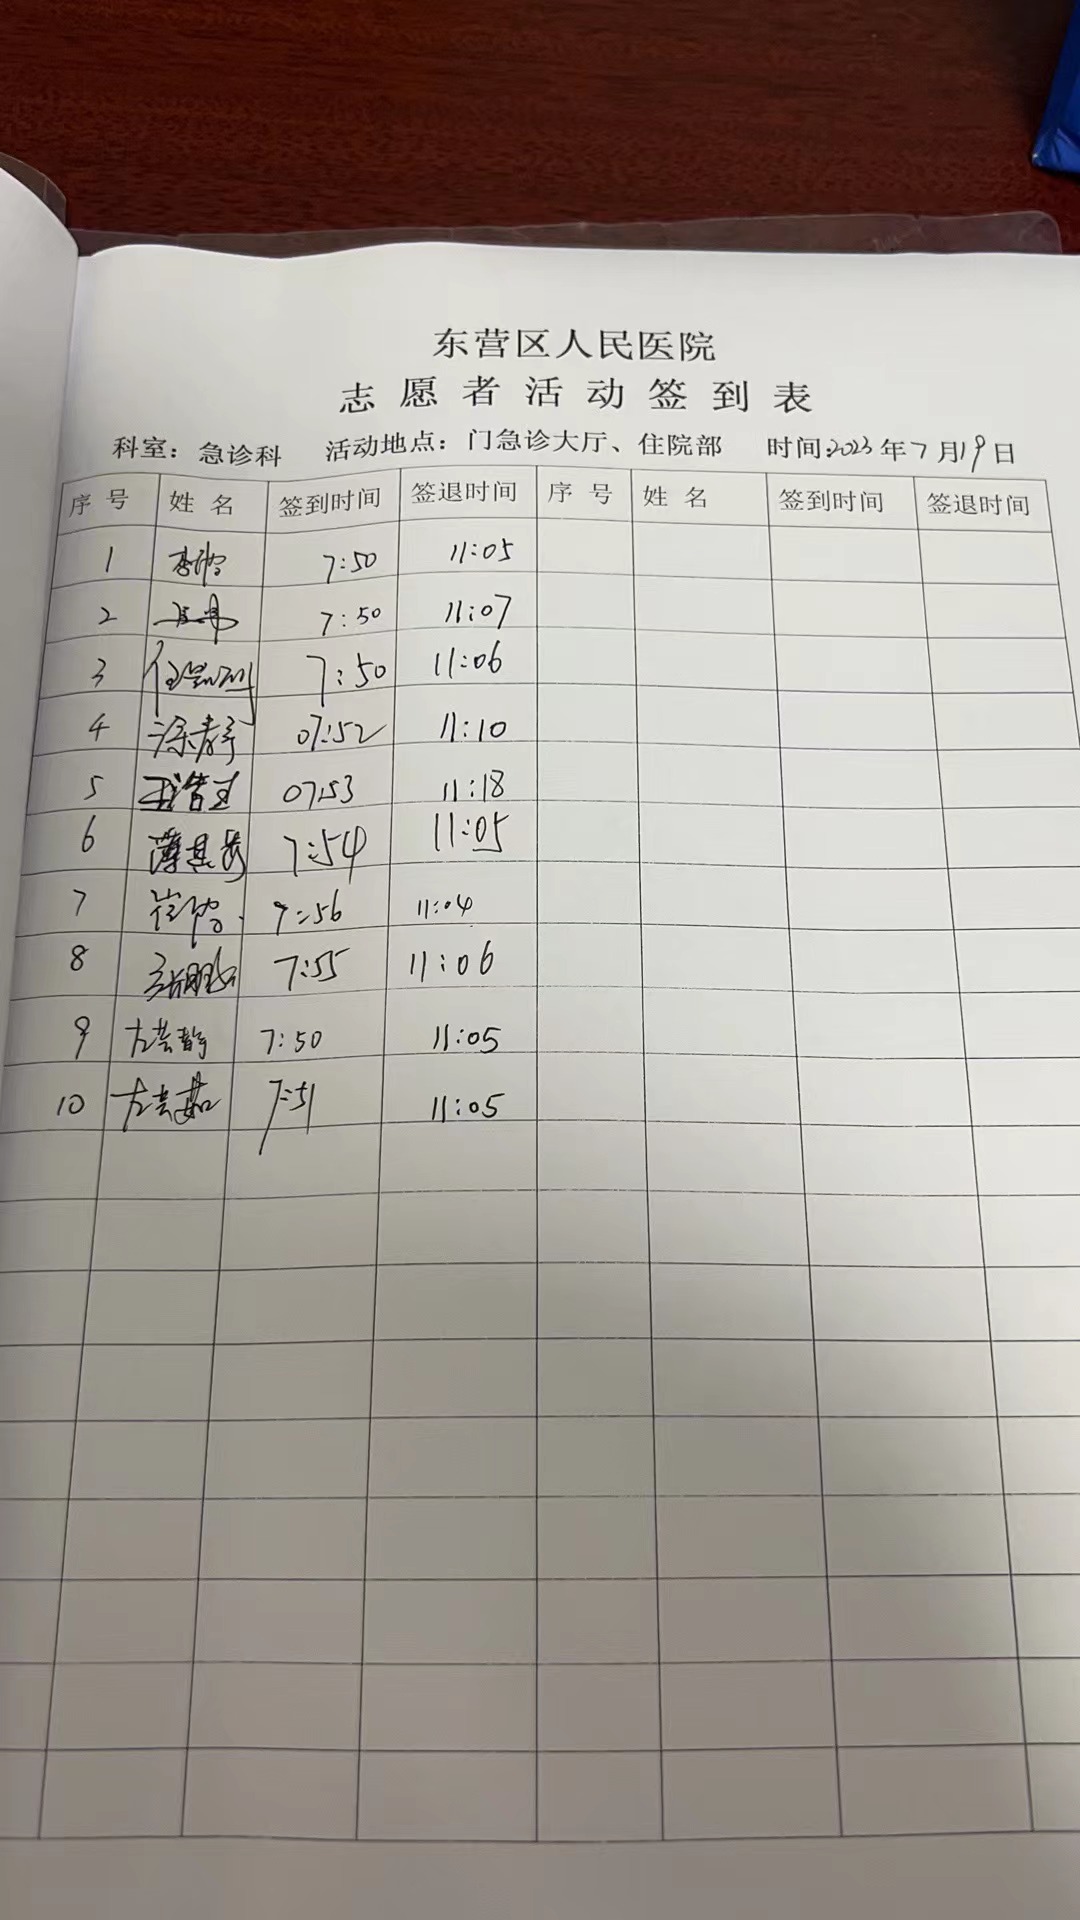 东营区人民医院
志愿者活动签到表
科室：急诊科 活动地点：门急诊大厅、住院部 时间:2023年7月19日
序号 姓名 签到时间 签退时间 序号 姓名 签到时间 签退时间
1 7:50 11:05
2 7:50 11:07
3 7:50 11:06
4 07:52 11:10
5 07:53 11:18
6 7:54 11:05
7 7:56 11:04
8 7:55 11:06
9 7:50 11:05
10 7:51 11:05